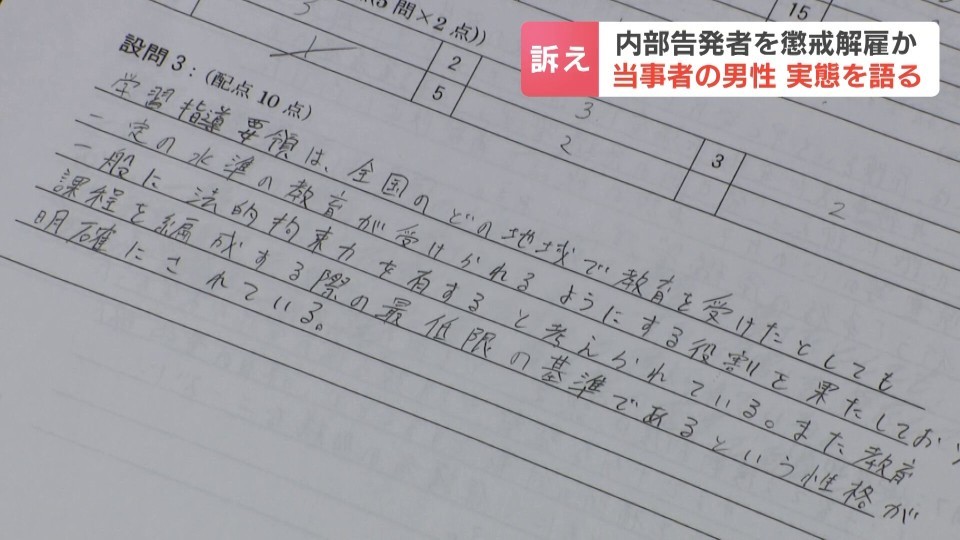 訴え
内部告発者を懲戒解雇か
当事者の男性 実態を語る
問×2点))
15
3
2
5
3
2
3
2
設問3:(配点10点)
学習指導要領は、全国のどの地域で教育を受けたとしても
一定の水準の教育が受けられるようにする役割を果たしており
一般に法的拘束力を有すると考えられている。また教育
課程を編成する際の最低限の基準であるという性格が
明確にされている。